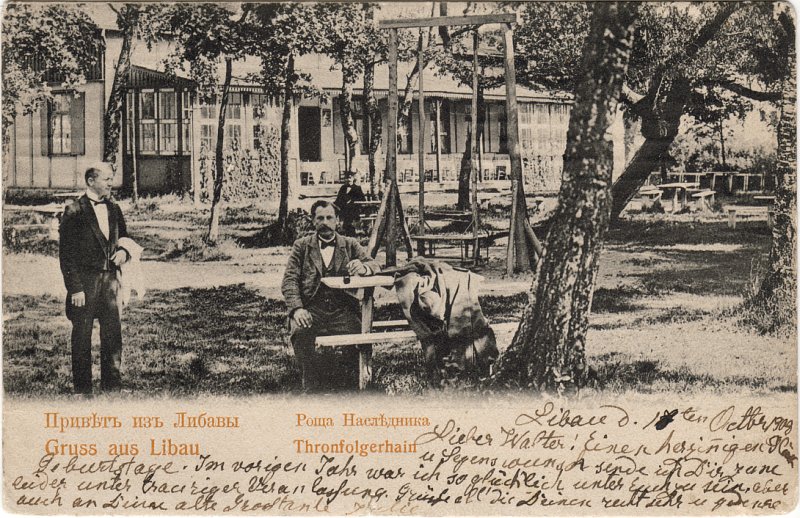 Привѣтъ изъ Либавы
Gruss aus Libau
Роща Наслѣдника
Thronfolgerhain
Libau d. ten Octbr 1909
Lieber Walter! Einen herzinnigen
u. Segenswunsch sende ich Dir zum
Geburtstage. Im vorigen Jahr war ich so glücklich unter Euch zu sein, aber
leider unter trauriger Veranlassung. Grüsse all die Deinen recht sehr u.
auch an Deine alte Grosstante Julie